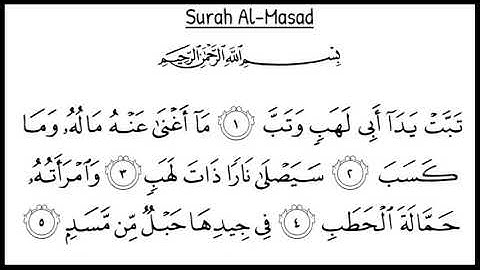 Surah Al-Masad
بِسْمِ اللَّهِ الرَّحْمَٰنِ الرَّحِيمِ
تَبَّتْ يَدَآ أَبِى لَهَبٍ وَتَبَّ ١ مَآ أَغْنَىٰ عَنْهُ مَالُهُۥ وَمَا
كَسَبَ ٢ سَيَصْلَىٰ نَارًا ذَاتَ لَهَبٍ ٣ وَٱمْرَأَتُهُۥ
حَمَّالَةَ ٱلْحَطَبِ ٤ فِى جِيدِهَا حَبْلٌ مِّن مَّسَدٍۭ ٥